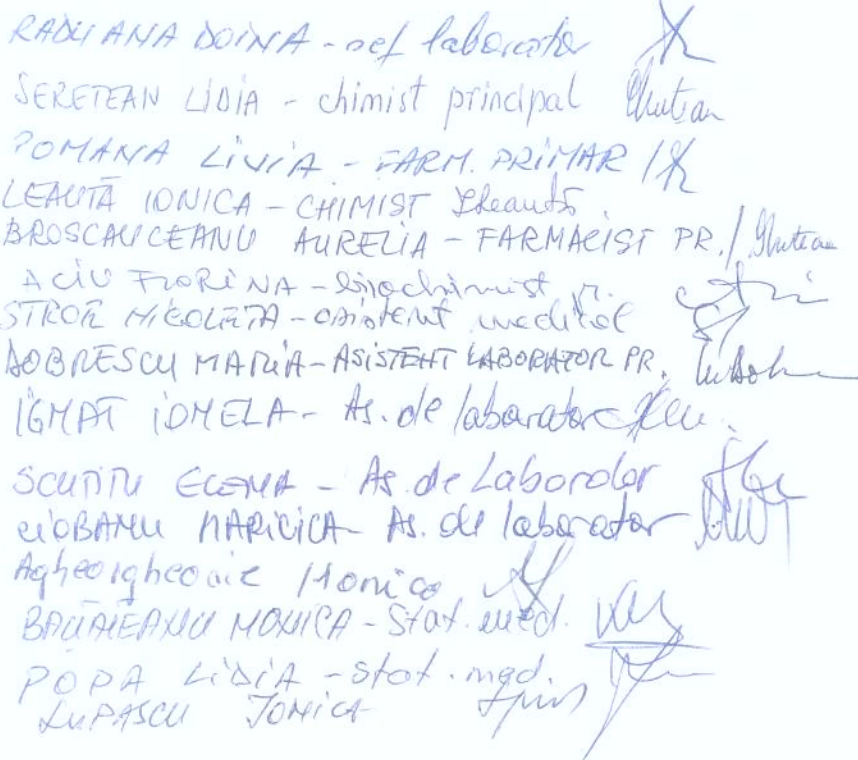 RADU ANA DOINA - șef laborator
SERETEAN LIDIA - chimist principal
ROMANA LIVIA - FARM. PRIMAR
LEAUTĂ IONICA - CHIMIST Leaută
BROSCAUCEANU AURELIA - FARMACIST PR.
ACIU FLORINA - biochimist pr.
STROE NICOLETA - asistent medical
DOBRESCU MARIA - ASISTENT LABORATOR PR.
IGNAT IONELA - As. de laborator
SCUTITU ELENA - As. de Laborator
CIOBANU MARICICA - As. de laborator
Agheorghesaie Monica
MONICA - Stat. med.
POPA LIDIA - stat. med.
LUPASCU IONICA